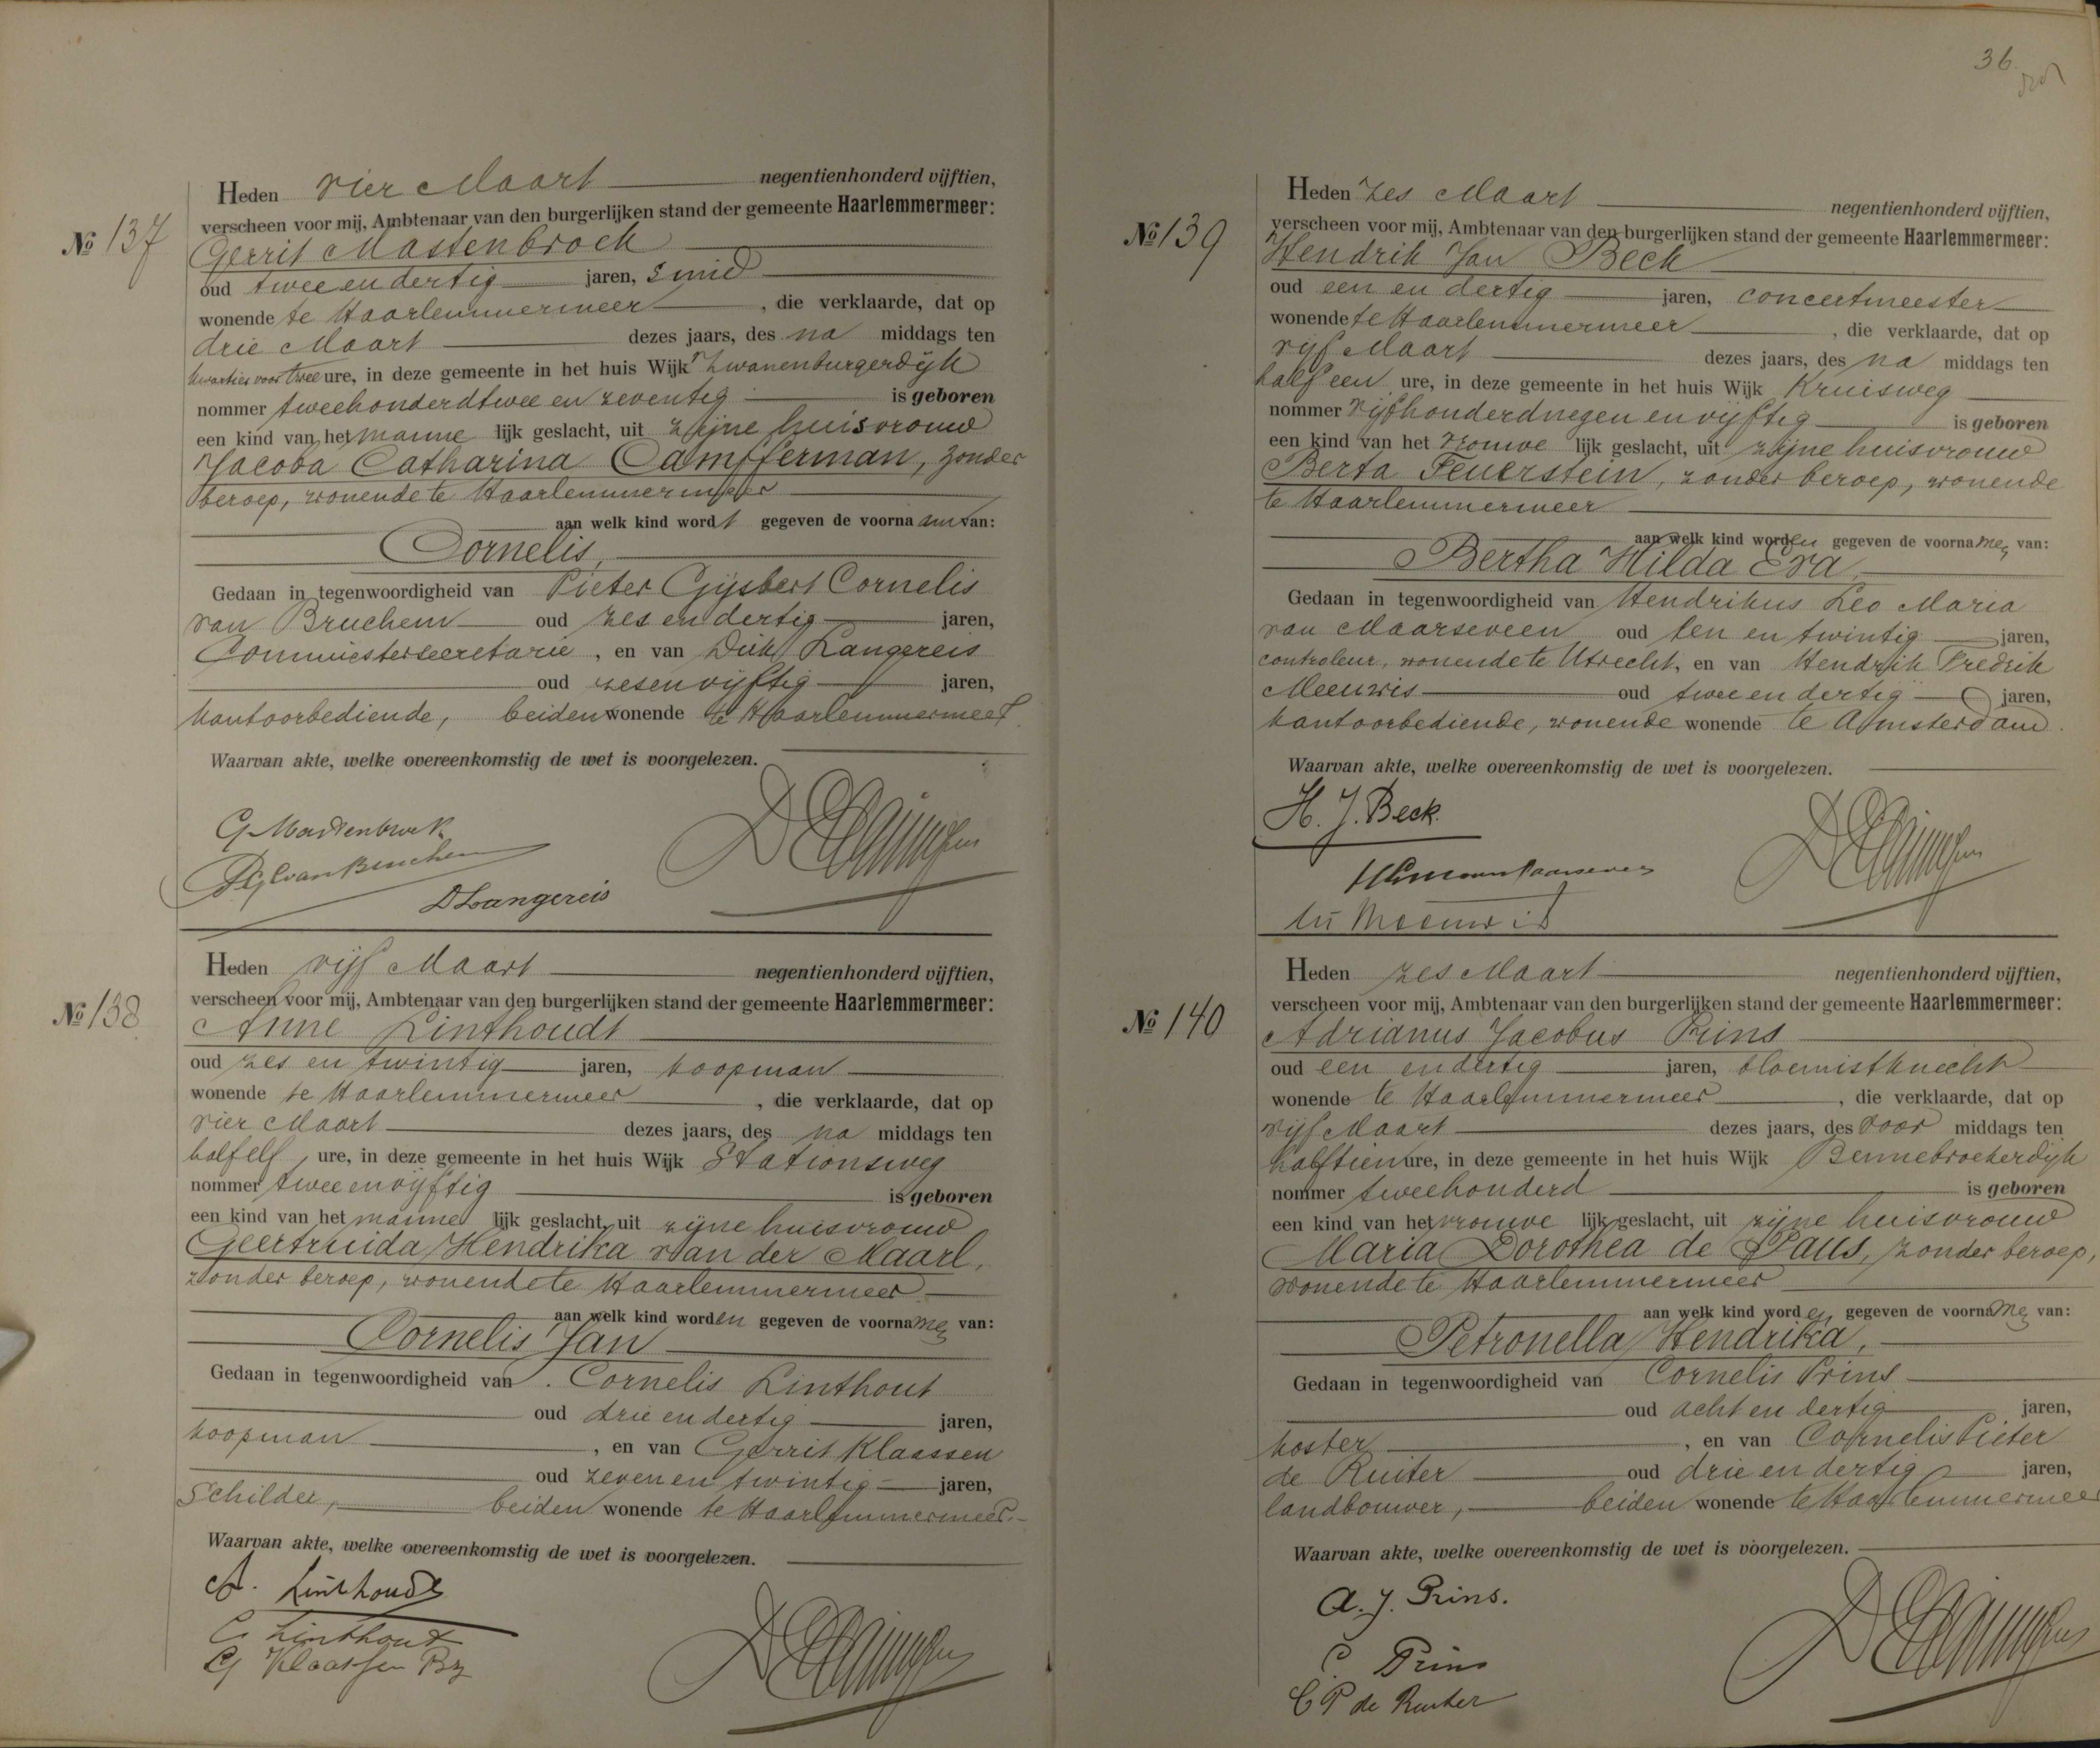 36.
Nº 137
Heden vier Maart negentienhonderd vijftien,
verscheen voor mij, Ambtenaar van den burgerlijken stand der gemeente Haarlemmermeer:
Gerrit Mastenbroek
oud twee en dertig jaren, smid
wonende te Haarlemmermeer, die verklaarde, dat op
drie Maart dezes jaars, des na middags ten
kwartier voor twee ure, in deze gemeente in het huis Wijk Zwanenburgerdijk
nommer tweehonderdtwee en zeventig is geboren
een kind van het manne lijk geslacht, uit zijne huisvrouw
Jacoba Catharina Campfferman, zonder
beroep, wonende te Haarlemmermeer
aan welk kind wordt gegeven de voornaam van:
Cornelis,
Gedaan in tegenwoordigheid van Pieter Gijsbert Cornelis
van Bruchem oud zes en dertig jaren,
Commiestersecretarie, en van Dirk Langereis
oud zesenvijftig jaren,
kantoorbediende, beiden wonende te Haarlemmermeer.
Waarvan akte, welke overeenkomstig de wet is voorgelezen.
G Mastenbroek
PGC van Bruchem
D Langereis
Nº 138
Heden vijf Maart negentienhonderd vijftien,
verscheen voor mij, Ambtenaar van den burgerlijken stand der gemeente Haarlemmermeer:
Anne Linthoudt
oud zes en twintig jaren, koopman
wonende te Haarlemmermeer, die verklaarde, dat op
vier Maart dezes jaars, des na middags ten
half elf ure, in deze gemeente in het huis Wijk Stationsweg
nommer twee en vijftig is geboren
een kind van het manne lijk geslacht, uit zijne huisvrouw
Geertruida Hendrika van der Maarl,
zonder beroep, wonende te Haarlemmermeer
aan welk kind worden gegeven de voornamen van:
Cornelis Jan
Gedaan in tegenwoordigheid van Cornelis Linthout
oud drie en dertig jaren,
koopman, en van Gerrit Klaassen
oud zeven en twintig jaren,
schilder, beiden wonende te Haarlemmermeer.
Waarvan akte, welke overeenkomstig de wet is voorgelezen.
A. Linthoudt
C Linthout
G Klaassen Bz
Nº 139
Heden zes Maart negentienhonderd vijftien,
verscheen voor mij, Ambtenaar van den burgerlijken stand der gemeente Haarlemmermeer:
Hendrik Jan Beck
oud een en dertig jaren, concertmeester
wonende te Haarlemmermeer, die verklaarde, dat op
vijf Maart dezes jaars, des na middags ten
half een ure, in deze gemeente in het huis Wijk Kruisweg
nommer vijfhonderdnegen en vijftig is geboren
een kind van het vrouwe lijk geslacht, uit zijne huisvrouw
Berta Feuerstein, zonder beroep, wonende
te Haarlemmermeer
aan welk kind worden gegeven de voornamen van:
Bertha Hilda Eva
Gedaan in tegenwoordigheid van Hendrikus Leo Maria
van Maarseveen oud een en twintig jaren,
controleur, wonende te Utrecht, en van Hendrik Fredrik
Meeuwis oud twee en dertig jaren,
kantoorbediende, wonende wonende te Amsterdam.
Waarvan akte, welke overeenkomstig de wet is voorgelezen.
H. J. Beck.
Meeuwis
Nº 140
Heden zes Maart negentienhonderd vijftien,
verscheen voor mij, Ambtenaar van den burgerlijken stand der gemeente Haarlemmermeer:
Adrianus Jacobus Prins
oud een en dertig jaren, bloemistknecht
wonende te Haarlemmermeer, die verklaarde, dat op
vijf Maart dezes jaars, des voor middags ten
half tien ure, in deze gemeente in het huis Wijk Bennebroekerdijk
nommer tweehonderd is geboren
een kind van het vrouwe lijk geslacht, uit zijne huisvrouw
Maria Dorothea de Paus, zonder beroep,
wonende te Haarlemmermeer
aan welk kind worden gegeven de voornamen van:
Petronella Hendrika,
Gedaan in tegenwoordigheid van Cornelis Prins
oud acht en dertig jaren,
koster, en van Cornelis Pieter
de Ruiter oud drie en dertig jaren,
landbouwer, beiden wonende te Haarlemmermeer
Waarvan akte, welke overeenkomstig de wet is voorgelezen.
A. J. Prins.
C. Prins
C P de Ruiter